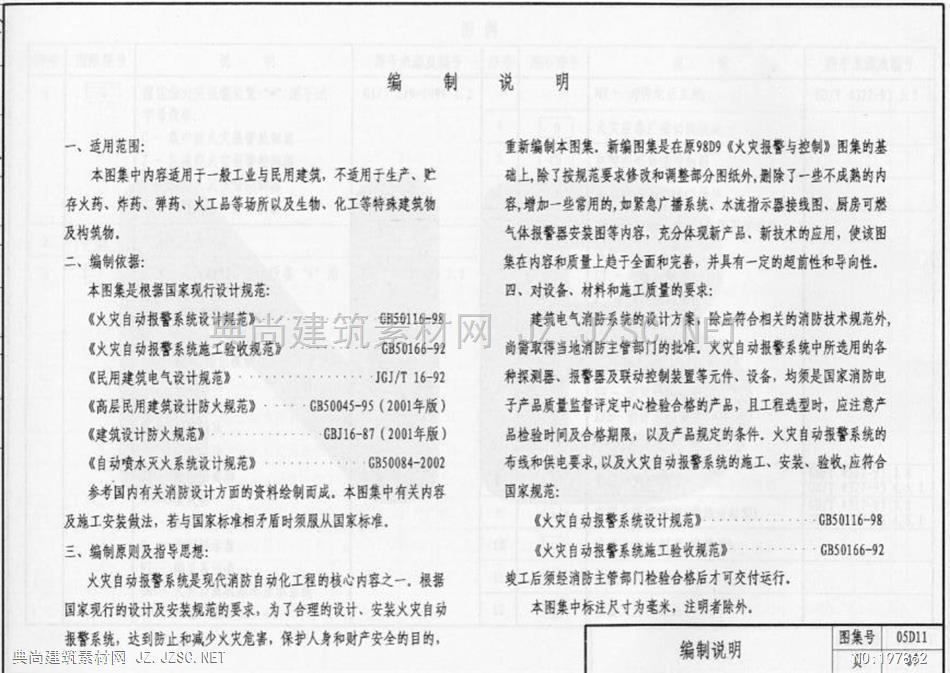 编 制 说 明
一、适用范围:
本图集中内容适用于一般工业与民用建筑, 不适用于生产、贮
存火药、炸药、弹药、火工品等场所以及生物、化工等特殊建筑物
及构筑物。
二、编制依据:
本图集是根据国家现行设计规范:
《火灾自动报警系统设计规范》 GB50116-98
《火灾自动报警系统施工验收规范》 GB50166-92
《民用建筑电气设计规范》 JGJ/T 16-92
《高层民用建筑设计防火规范》 GB50045-95(2001年版)
《建筑设计防火规范》 GBJ16-87(2001年版)
《自动喷水灭火系统设计规范》 GB50084-2002
参考国内有关消防设计方面的资料绘制而成。本图集中有关内容
及施工安装做法, 若与国家标准相矛盾时须服从国家标准。
三、编制原则及指导思想:
火灾自动报警系统是现代消防自动化工程的核心内容之一。根据
国家现行的设计及安装规范的要求, 为了合理的设计、安装火灾自动
报警系统, 达到防止和减少火灾危害, 保护人身和财产安全的目的,
重新编制本图集。新编图集是在原98D9《火灾报警与控制》图集的基
础上,除了按规范要求修改和调整部分图纸外,删除了一些不成熟的内
容,增加一些常用的,如紧急广播系统、水流指示器接线图、厨房可燃
气体报警器安装图等内容, 充分体现新产品、新技术的应用, 使该图
集在内容和质量上趋于全面和完善, 并具有一定的超前性和导向性。
四、对设备、材料和施工质量的要求:
建筑电气消防系统的设计方案, 除应符合相关的消防技术规范外,
尚需取得当地消防主管部门的批准。火灾自动报警系统中所选用的各
种探测器、报警器及联动控制装置等元件、设备, 均须是国家消防电
子产品质量监督评定中心检验合格的产品, 且工程选型时, 应注意产
品检验时间及合格期限, 以及产品规定的条件。火灾自动报警系统的
布线和供电要求,以及火灾自动报警系统的施工、安装、验收,应符合
国家规范:
《火灾自动报警系统设计规范》 GB50116-98
《火灾自动报警系统施工验收规范》 GB50166-92
竣工后须经消防主管部门检验合格后才可交付运行。
本图集中标注尺寸为毫米, 注明者除外。
编制说明
图集号 05D11
页
典尚建筑素材网 JZ.JZSC.NET
典尚建筑素材网 JZ.JZSC.NET
NO:197862